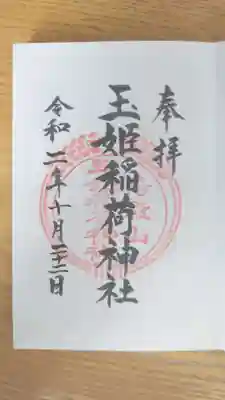 奉拝
玉姫稲荷神社
令和二年十月二十二日